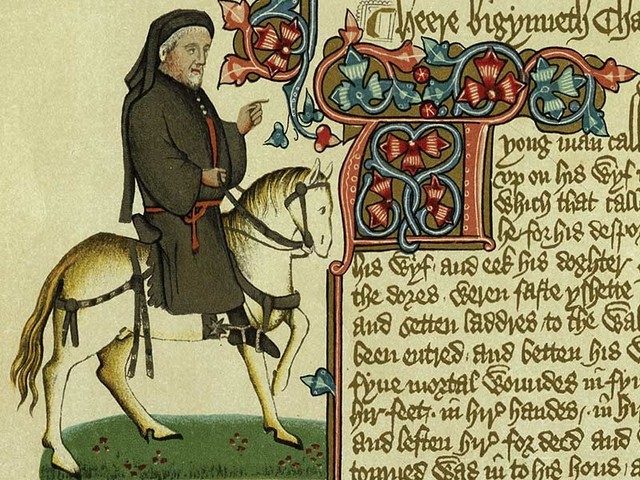 Heere bigynneth Cha
A yong man call
vp on his wyf
which that call
he for his despo
his wyf and eek his doghter
the dores weren faste yshette
and setten laddres to the wal
been entred and betten his w
fyue mortal woundes in fy
hir feet in hir handes in hi
and leften hir for deed and
torned was in to his hous a